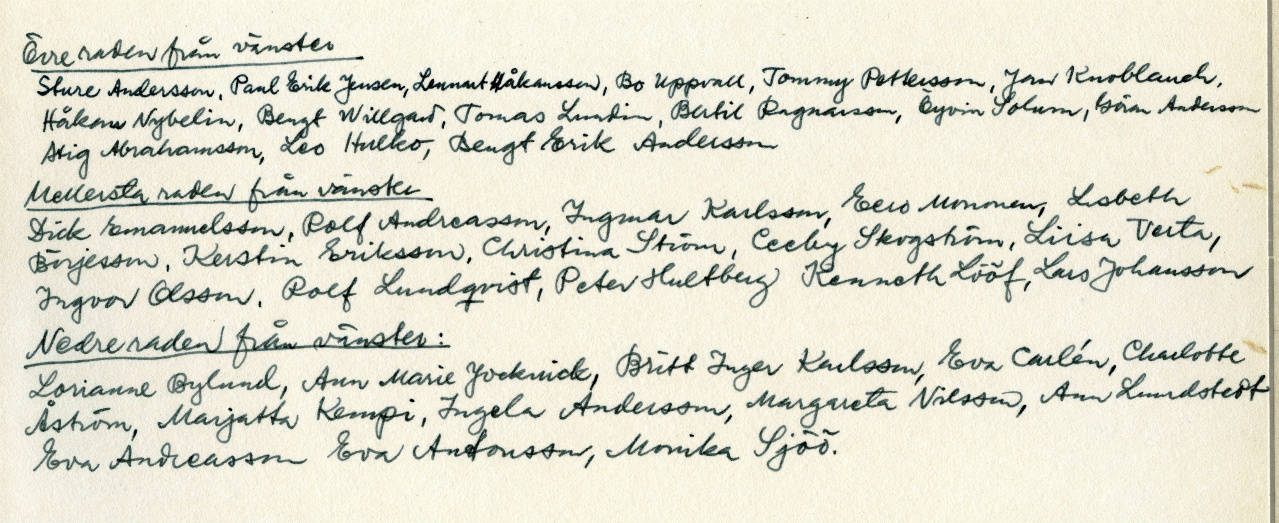 Övre raden från vänster
Sture Andersson, Paul Erik Jensen, Lennart Håkansson, Bo Uppvall, Tommy Pettersson, Jan Knoblauch,
Håkan Nybelin, Bengt Willgard, Tomas Lundin, Bertil Ragnarsson, Eyvin Solum, Göran Andersson
Stig Abrahamsson, Leo Hulko, Bengt Erik Andersson
Mellersta raden från vänster
Dick Emanuelsson, Rolf Andreasson, Ingmar Karlsson, Eero Mononen, Lisbeth
Börjesson, Kerstin Eriksson, Christina Ström, Cecby Skogström, Liisa Verta,
Ingvar Olsson, Rolf Lundqvist, Peter Hultberg Kenneth Lööf, Lars Johansson
Nedre raden från vänster:
Lorianne Bylund, Ann Marie Jocknick, Britt Inger Karlsson, Eva Carlén, Charlotte
Åström, Marjatta Kempi, Ingela Andersson, Margareta Nilsson, Ann Lundstedt
Eva Andreasson Eva Antonsson, Monika Sjöö.